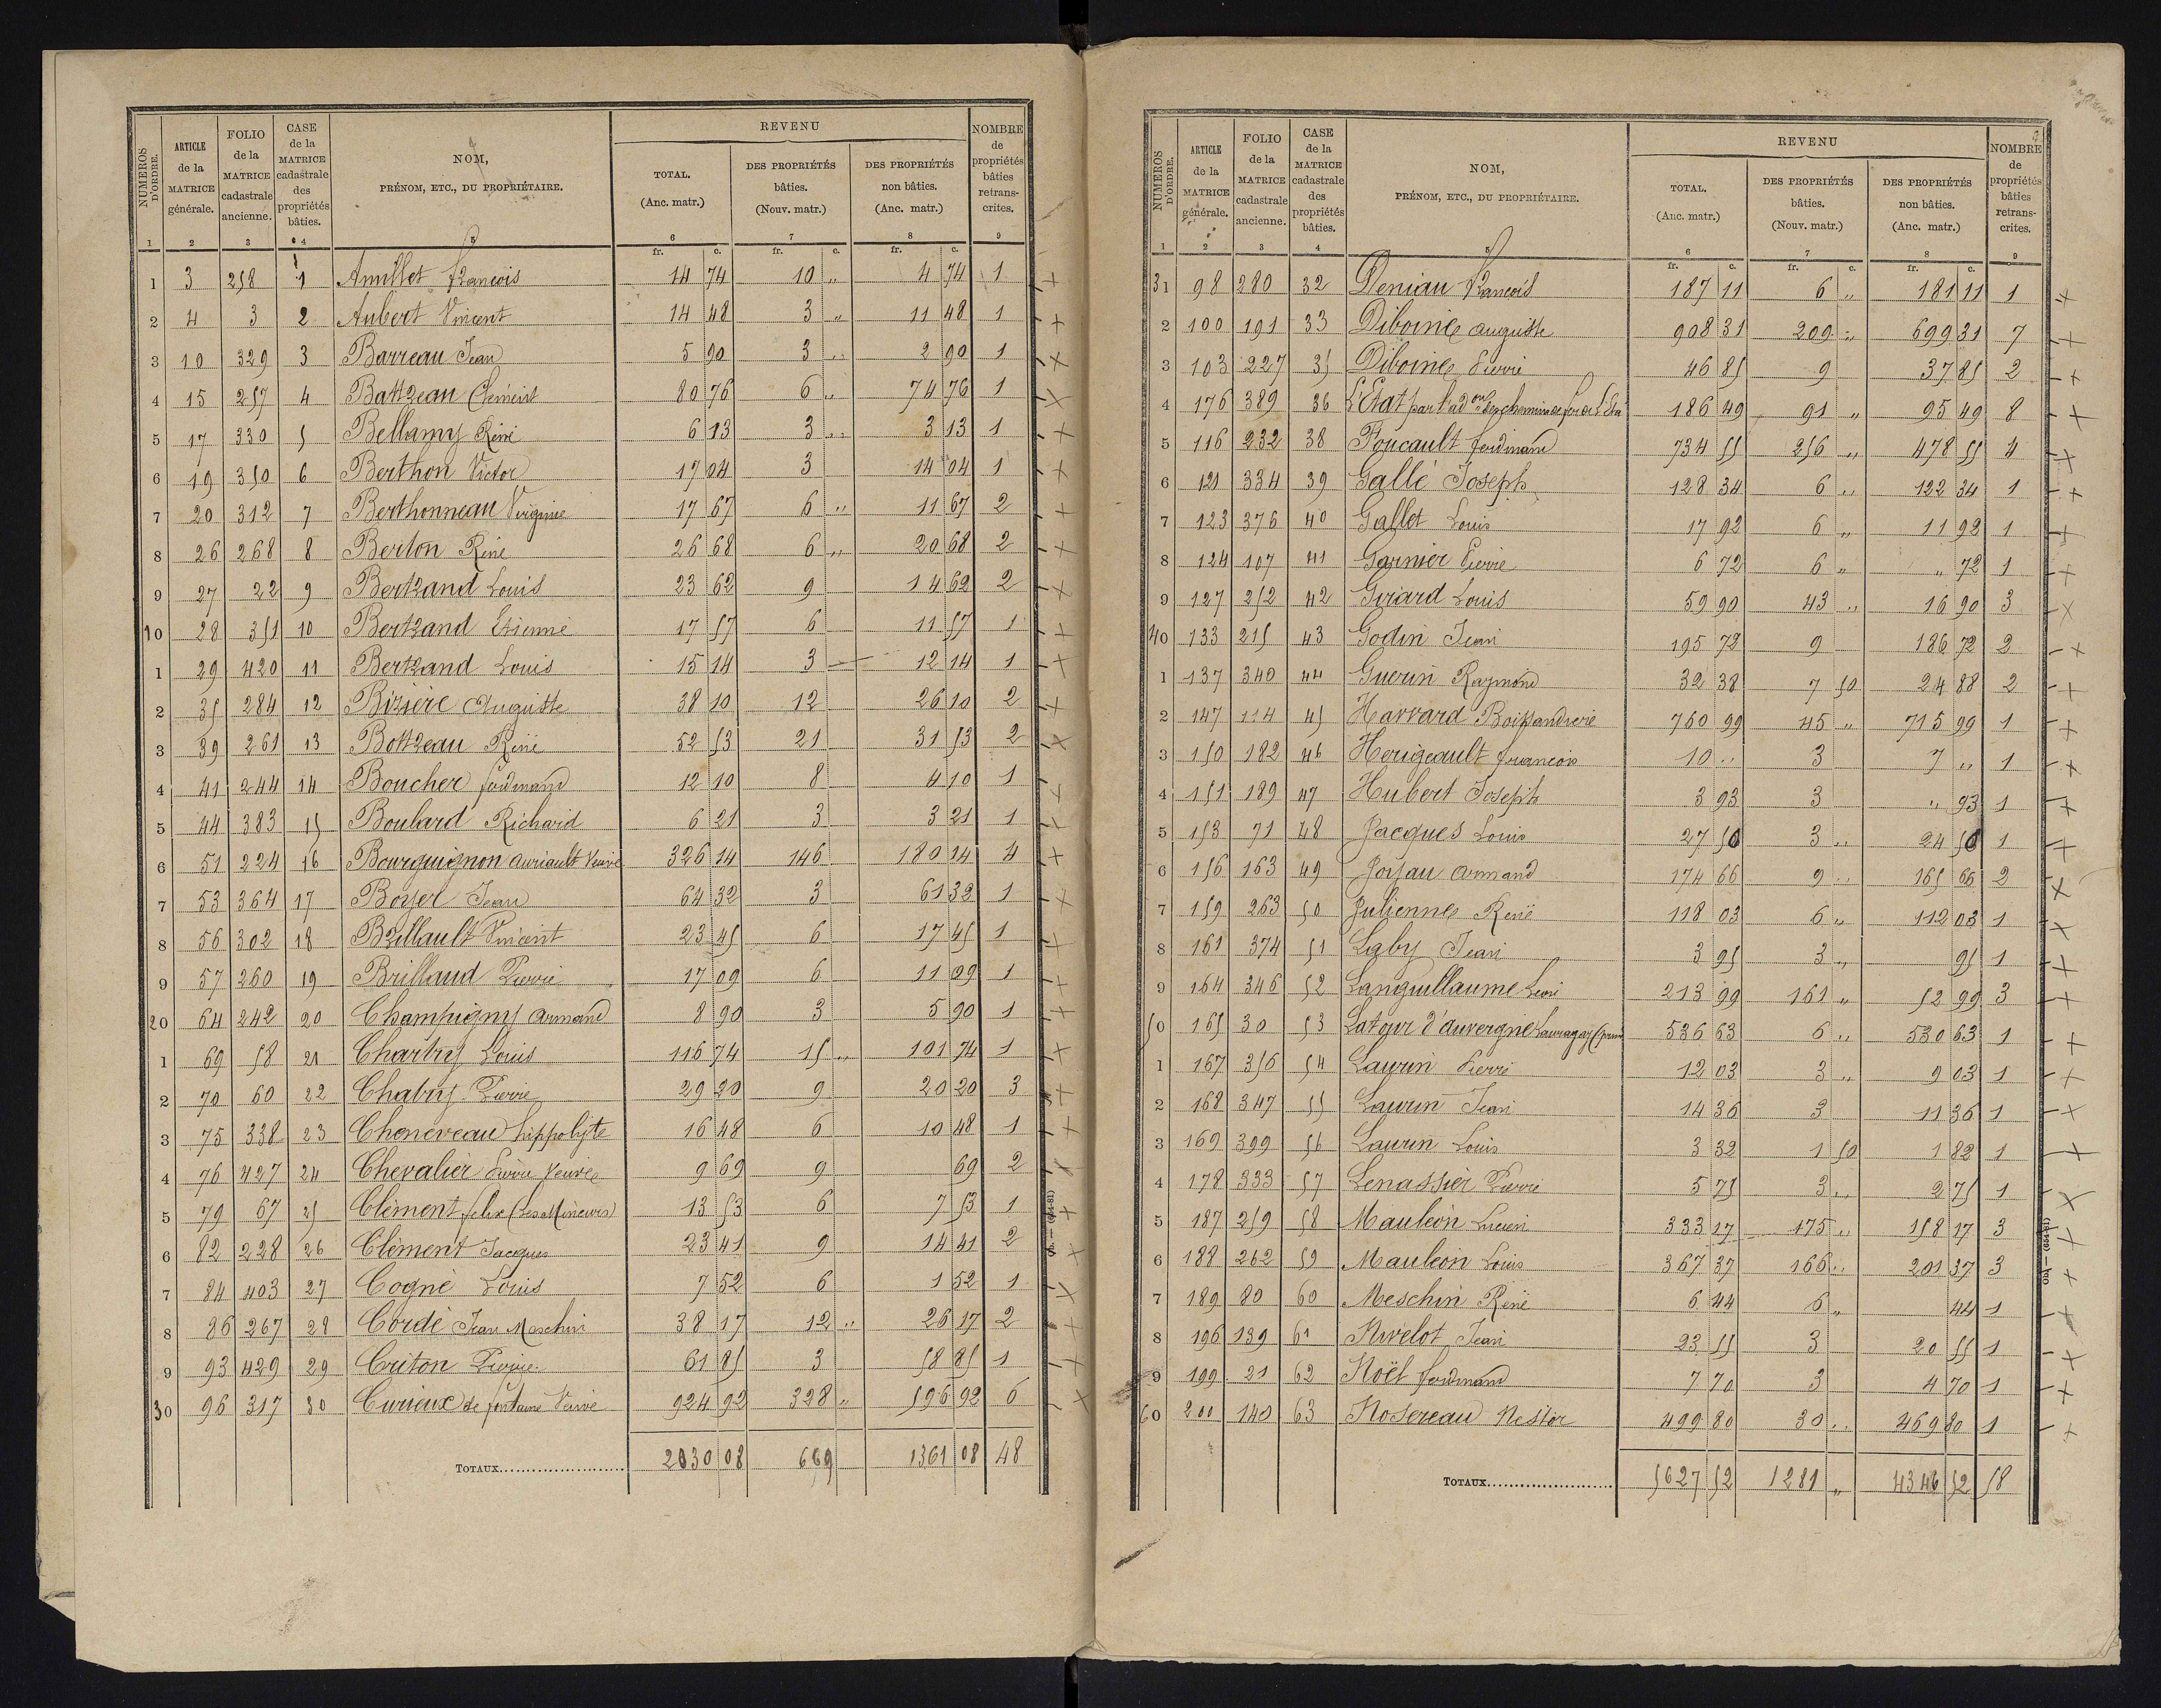 NUMÉROS D'ORDRE. | ARTICLE de la MATRICE générale. | FOLIO de la MATRICE cadastrale ancienne. | CASE de la MATRICE cadastrale des propriétés bâties. | NOM, PRÉNOM, ETC., DU PROPRIÉTAIRE. | REVENU | NOMBRE de propriétés bâties retrans-crites.
TOTAL. (Anc. matr.) | DES PROPRIÉTÉS bâties. (Nouv. matr.) | DES PROPRIÉTÉS non bâties. (Anc. matr.)
1 | 2 | 3 | 4 | 5 | 6 | 7 | 8 | 9
fr. c. | fr. c. | fr. c.
1 | 3 | 258 | 1 | Amillet François | 14 74 | 10 " | 4 74 | 1
2 | 4 | 3 | 2 | Aubert Vincent | 14 48 | 3 " | 11 48 | 1
3 | 10 | 329 | 3 | Barreau Jean | 5 90 | 3 " | 2 90 | 1
4 | 15 | 257 | 4 | Battreau Clément | 80 76 | 6 " | 74 76 | 1
5 | 17 | 330 | 5 | Bellamy Réné | 6 13 | 3 " | 3 13 | 1
6 | 19 | 350 | 6 | Berthon Victor | 17 04 | 3 | 14 04 | 1
7 | 20 | 312 | 7 | Berthonneau Virginie | 17 67 | 6 " | 11 67 | 2
8 | 26 | 268 | 8 | Berton Réné | 26 68 | 6 " | 20 68 | 2
9 | 27 | 22 | 9 | Bertrand Louis | 23 62 | 9 | 14 62 | 2
10 | 28 | 351 | 10 | Bertrand Etienne | 17 57 | 6 | 11 57 | 1
1 | 29 | 420 | 11 | Bertrand Louis | 15 14 | 3 — | 12 14 | 1
2 | 35 | 284 | 12 | Bizière Auguste | 38 10 | 12 | 26 10 | 2
3 | 39 | 261 | 13 | Bottreau Réné | 52 53 | 21 | 31 53 | 2
4 | 41 | 244 | 14 | Boucher ferdinand | 12 10 | 8 | 4 10 | 1
5 | 44 | 383 | 15 | Boulard Richard | 6 21 | 3 | 3 21 | 1
6 | 51 | 224 | 16 | Bourguignon Auriault Veuve | 326 14 | 146 | 180 14 | 4
7 | 53 | 364 | 17 | Boyer Jean | 64 32 | 3 | 61 32 | 1
8 | 56 | 302 | 18 | Brillault Vincent | 23 45 | 6 | 17 45 | 1
9 | 57 | 260 | 19 | Brillaud Pierre | 17 09 | 6 | 11 09 | 1
20 | 64 | 242 | 20 | Champigny Armand | 8 90 | 3 | 5 90 | 1
1 | 69 | 58 | 21 | Chartrey Louis | 116 74 | 15 " | 101 74 | 1
2 | 70 | 60 | 22 | Chatry Pierre | 29 20 | 9 | 20 20 | 3
3 | 75 | 338 | 23 | Chenereau hippolyte | 16 48 | 6 | 10 48 | 1
4 | 76 | 427 | 24 | Chevalier Pierre Veuve | 9 69 | 9 | 69 | 2
5 | 79 | 67 | 25 | Clément felix (Les Mineurs) | 13 53 | 6 | 7 53 | 1
6 | 82 | 228 | 26 | Clément Jacques | 23 41 | 9 | 14 41 | 2
7 | 84 | 403 | 27 | Cogné Louis | 7 52 | 6 | 1 52 | 1
8 | 86 | 267 | 28 | Cordé Jean Meschin | 38 17 | 12 " | 26 17 | 2
9 | 93 | 429 | 29 | Criton Pierre | 61 85 | 3 | 58 85 | 1
30 | 96 | 317 | 30 | Curieux de fontaine Veuve | 924 92 | 328 " | 596 92 | 6
TOTAUX | 2030 08 | 669 | 1361 08 | 48
NUMÉROS D'ORDRE. | ARTICLE de la MATRICE générale. | FOLIO de la MATRICE cadastrale ancienne. | CASE de la MATRICE cadastrale des propriétés bâties. | NOM, PRÉNOM, ETC., DU PROPRIÉTAIRE. | REVENU | NOMBRE de propriétés bâties retrans-crites.
2
TOTAL. (Anc. matr.) | DES PROPRIÉTÉS bâties. (Nouv. matr.) | DES PROPRIÉTÉS non bâties. (Anc. matr.)
1 | 2 | 3 | 4 | 5 | 6 | 7 | 8 | 9
fr. c. | fr. c. | fr. c.
31 | 98 | 280 | 32 | Deniau François | 187 11 | 6 " | 181 11 | 1
2 | 100 | 191 | 33 | Diboine Auguste | 908 31 | 209 " | 699 31 | 7
3 | 103 | 227 | 35 | Diboine Pierre | 46 85 | 9 | 37 85 | 2
4 | 176 | 389 | 36 | L'Etat par l'adon des chemins de fer de l'Etat | 186 49 | 91 " | 95 49 | 8
5 | 116 | 232 | 38 | Foucault ferdinand | 734 55 | 256 " | 478 55 | 4
6 | 121 | 334 | 39 | Gallé Joseph | 128 34 | 6 " | 122 34 | 1
7 | 123 | 376 | 40 | Gallet Louis | 17 92 | 6 " | 11 92 | 1
8 | 124 | 107 | 41 | Garnier Pierre | 6 72 | 6 " | " 72 | 1
9 | 127 | 252 | 42 | Girard Louis | 59 90 | 43 " | 16 90 | 3
40 | 133 | 215 | 43 | Godin Jean | 195 72 | 9 | 186 72 | 2
1 | 137 | 340 | 44 | Guerin Raymond | 32 38 | 7 50 | 24 88 | 2
2 | 147 | 114 | 45 | Harvard Boissandrerie | 760 99 | 45 " | 715 99 | 1
3 | 150 | 182 | 46 | Herigeault françois | 10 " | 3 | 7 " | 1
4 | 151 | 189 | 47 | Hubert Joseph | 3 93 | 3 | " 93 | 1
5 | 153 | 71 | 48 | Jacques Louis | 27 50 | 3 " | 24 50 | 1
6 | 156 | 163 | 49 | Joyau Armand | 174 66 | 9 " | 165 66 | 2
7 | 159 | 263 | 50 | Julienne René | 118 03 | 6 " | 112 03 | 1
8 | 161 | 374 | 51 | Laby Jean | 3 95 | 3 " | 95 | 1
9 | 164 | 346 | 52 | Languillaume | 213 99 | 161 " | 52 99 | 3
50 | 165 | 30 | 53 | Latour d'auvergne Lauragais | 536 63 | 6 " | 530 63 | 1
1 | 167 | 356 | 54 | Laurin Pierre | 12 03 | 3 " | 9 03 | 1
2 | 168 | 347 | 55 | Laurin Jean | 14 36 | 3 | 11 36 | 1
3 | 169 | 399 | 56 | Laurin Louis | 3 32 | 1 50 | 1 82 | 1
4 | 178 | 333 | 57 | Lenassier Pierre | 5 75 | 3 " | 2 75 | 1
5 | 187 | 259 | 58 | Mauleon Lucien | 333 17 | 175 " | 158 17 | 3
6 | 188 | 262 | 59 | Mauleon Louis | 367 37 | 166 " | 201 37 | 3
7 | 189 | 80 | 60 | Meschin René | 6 44 | 6 " | 44 | 1
8 | 196 | 139 | 61 | Nivelot Jean | 23 55 | 3 | 20 55 | 1
9 | 199 | 21 | 62 | Noël ferdinand | 7 70 | 3 | 4 70 | 1
60 | 200 | 140 | 63 | Nosereau Nestor | 499 80 | 30 " | 469 80 | 1
TOTAUX | 5627 52 | 1281 " | 4346 52 | 58